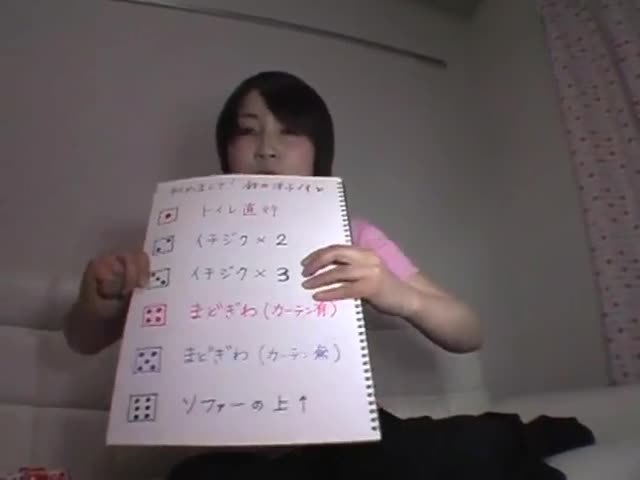 はじめまして!
トイレ直行
イチジク×2
イチジク×3
まどぎわ(カーテン有)
まどぎわ(カーテン無)
ソファーの上↑